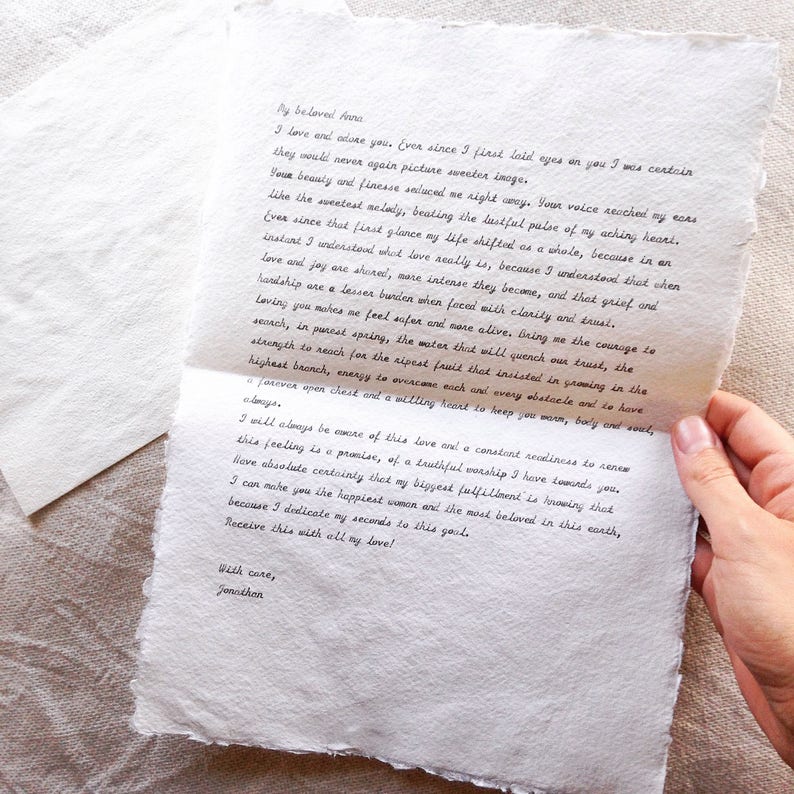 My beloved Anna
I love and adore you. Ever since I first laid eyes on you I was certain
they would never again picture sweeter image.
Your beauty and finesse seduced me right away. Your voice reached my ears
like the sweetest melody, beating the lustful pulse of my aching heart.
Ever since that first glance my life shifted as a whole, because in an
instant I understood what love really is, because I understood that when
love and joy are shared, more intense they become, and that grief and
hardship are a lesser burden when faced with clarity and trust.
Loving you makes me feel safer and more alive. Bring me the courage to
search, in purest spring, the water that will quench our trust, the
strength to reach for the ripest fruit that insisted in growing in the
highest branch, energy to overcome each and every obstacle and to have
a forever open chest and a willing heart to keep you warm, body and soul,
always.
I will always be aware of this love and a constant readiness to renew
this feeling is a promise, of a truthful worship I have towards you.
Have absolute certainty that my biggest fulfillment is knowing that
I can make you the happiest woman and the most beloved in this earth,
because I dedicate my seconds to this goal.
Receive this with all my love!
With care,
Jonathan